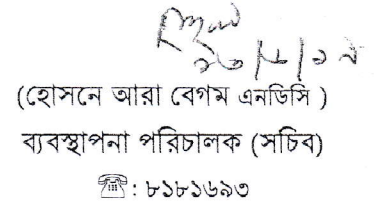 (হোসনে আরা বেগম এনডিসি )
ব্যবস্থাপনা পরিচালক (সচিব)
☎: ৮১৮১৬৯৩